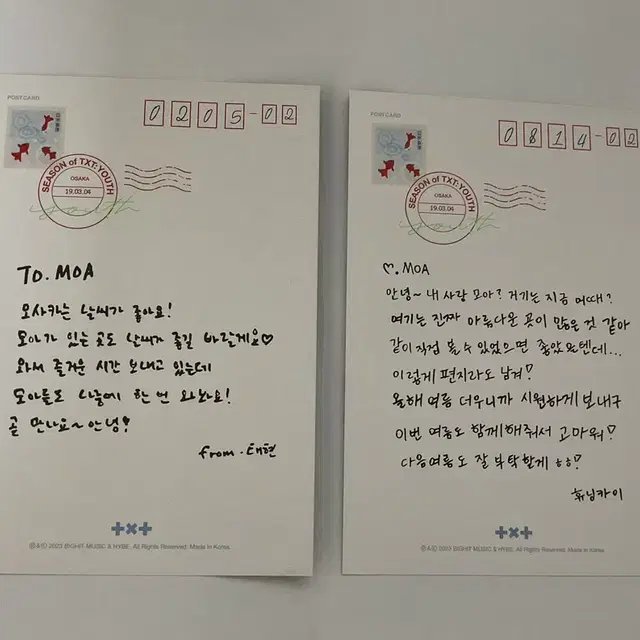 POSTCARD
0205-02
SEASON of TXT:YOUTH
OSAKA
19.03.04
youth
TO. MOA
오사카는 날씨가 좋아요!
모아가 있는 곳도 날씨가 좋길 바랄게요♡
와서 즐거운 시간 보내고 있는데
모아들도 나중에 한 번 와봐요!
곧 만나요~ 안녕!
from. 태현
©&℗ 2023 BIGHIT MUSIC & HYBE. All Rights Reserved. Made in Korea.
POSTCARD
0814-02
SEASON of TXT:YOUTH
OSAKA
19.03.04
youth
♡. MOA
안녕~ 내 사랑 모아? 거기는 지금 어때?
여기는 진짜 아름다운 곳이 많은 것 같아
같이 직접 볼 수 있었으면 좋았을텐데...
이렇게 편지라도 남겨♡
올해 여름 더우니까 시원하게 보내구
이번 여름도 함께해줘서 고마워♡
다음여름도 잘 부탁할게 ㅎㅎ♡
휴닝카이
©&℗ 2023 BIGHIT MUSIC & HYBE. All Rights Reserved. Made in Korea.